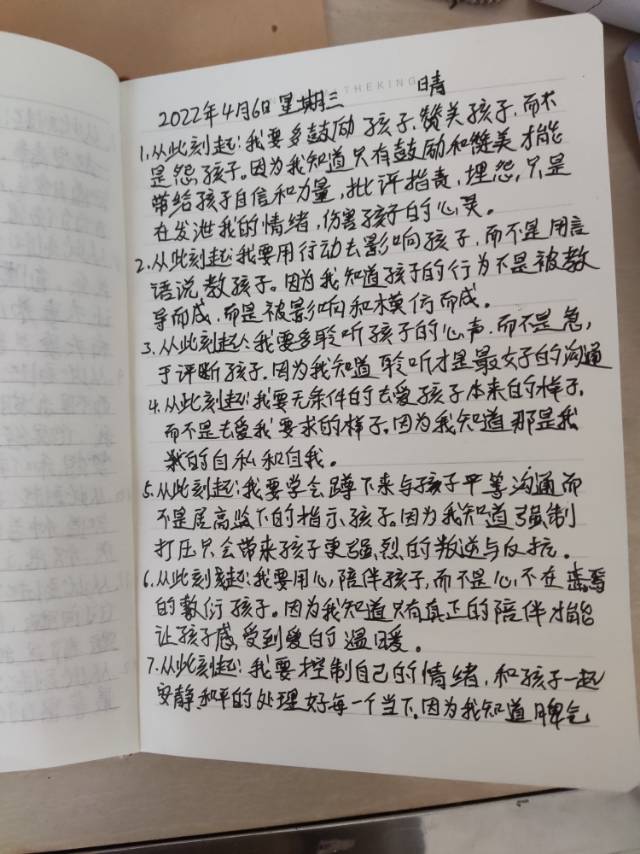 THEKING
2022年4月6日 星期三 晴
1.从此刻起:我要多鼓励孩子.赞美孩子,而不
是怨孩子。因为我知道只有鼓励和赞美才能
带给孩子自信和力量,批评指责,埋怨,只是
在发泄我的情绪,伤害孩子的心灵。
2.从此刻起:我要用行动去影响孩子,而不是用言
语说教孩子。因为我知道孩子的行为不是被教
导而成,而是被影响和模仿而成。
3.从此刻起:我要多聆听孩子的心声,而不是急,
于评断孩子.因为我知道聆听才是最好的沟通
4.从此刻起:我要无条件的去爱孩子本来的样子,
而不是去爱我要求的样子.因为我知道那是我
的自私和自我。
5.从此刻起:我要学会蹲下来与孩子平等沟通而
不是居高监下的指示孩子.因为我知道强制
打压只会带来孩子更强烈的叛逆与反抗.
6.从此刻起:我要用心,陪伴孩子,而不是心不在焉
的敷衍孩子。因为我知道只有真正的陪伴才能
让孩子感受到爱的温暖。
7.从此刻起:我要控制自己的情绪,和孩子一起
安静和平的处理好每一个当下.因为我知道脾气